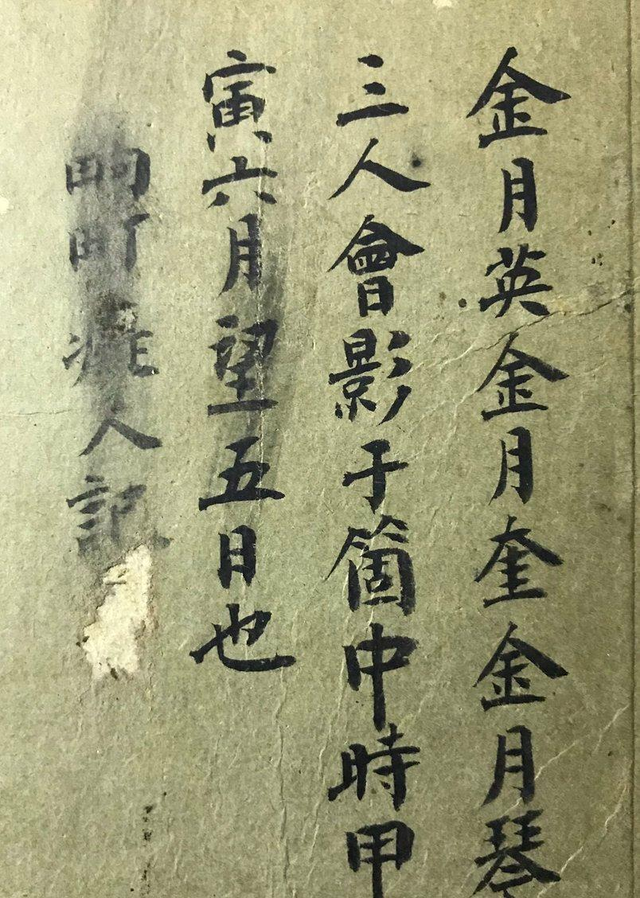 金月英金月奎金月琴
三人會影于箇中時甲
寅六月望五日也
畇町 人記